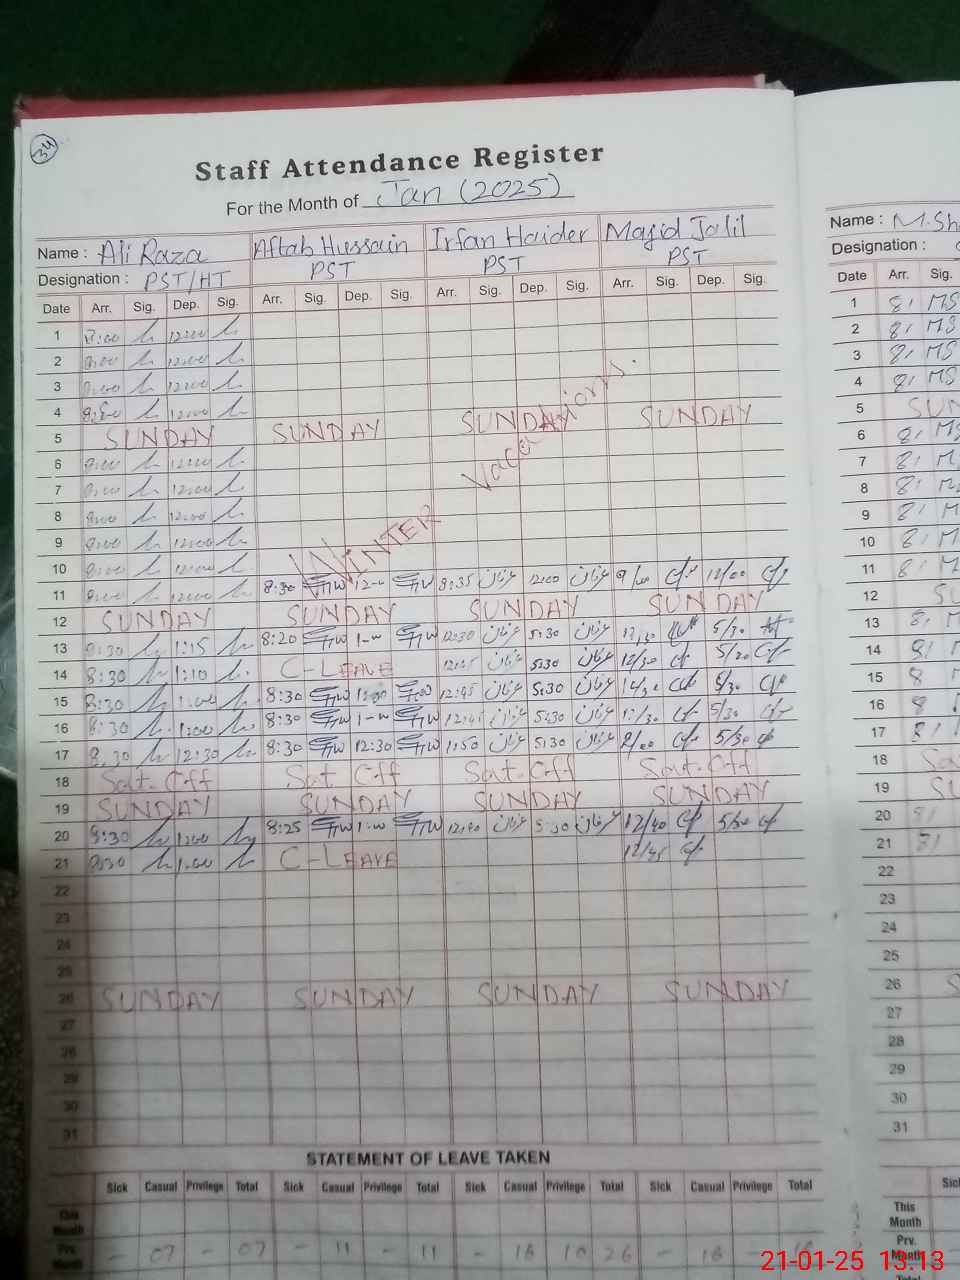 34
Staff Attendance Register
For the Month of Jan (2025)
Name : Ali Raza Aftab Hussain Irfan Haider Majid Jalil
Designation : PST/HT PST PST PST
Date Arr. Sig. Dep. Sig. Arr. Sig. Dep. Sig. Arr. Sig. Dep. Sig. Arr. Sig. Dep. Sig.
1 8:00 12:00
2 8:00 12:00
3 8:00 12:00
4 8:00 12:00
5 SUNDAY SUNDAY SUNDAY SUNDAY
6 8:00 12:00
7 8:00 12:00
8 8:00 12:00
9 8:00 12:00
10 8:00 12:00
WINTER Vacations.
11 8:00 12:00 8:30 12-00 8:35 عرفان 12:00 عرفان 9/00 12/00
12 SUNDAY SUNDAY SUNDAY SUNDAY
13 8:30 1:15 8:20 1-00 12:30 عرفان 5:30 عرفان 5/30
14 8:30 1:10 C-LEAVE 12:45 عرفان 5:30 عرفان 12/30 5/30
15 8:30 1:00 8:30 12:45 عرفان 5:30 عرفان 5/30
16 8:30 1:00 8:30 1-00 12:45 عرفان 5:30 عرفان 5/30
17 8:30 12:30 8:30 12:30 1:50 عرفان 5:30 عرفان 2/00 5/30
18 Sat. Off Sat Off Sat. Off Sat. Off
19 SUNDAY SUNDAY SUNDAY SUNDAY
20 8:30 1:00 8:25 1-00 12:40 عرفان 5:30 عرفان 12/40 5/30
21 8:30 1:00 C-LEAVE 12/45
22
23
24
25
26 SUNDAY SUNDAY SUNDAY SUNDAY
27
28
29
30
31
STATEMENT OF LEAVE TAKEN
Sick Casual Privilege Total Sick Casual Privilege Total Sick Casual Privilege Total Sick Casual Privilege Total
This Month
Prv. Month - 07 - 07 - 11 - 11 - 16 10 26 - 18 - 18
Name : M.Sh
Designation :
Date Arr. Sig.
1 8/ MS
2 8/ MS
3 8/ MS
4 8/ MS
5 SUN
6 8/ MS
7 8/ M
8 8/ M
9 8/ M
10 8/ M
11 8/ M
12 SU
13 8/ M
14 8/ M
15 8 M
16 8 M
17 8/ M
18 Sa
19 SU
20 8/
21 8/
22
23
24
25
26 S
27
28
29
30
31
Sick
This Month
Prv. Month
Total
21-01-25 13:13